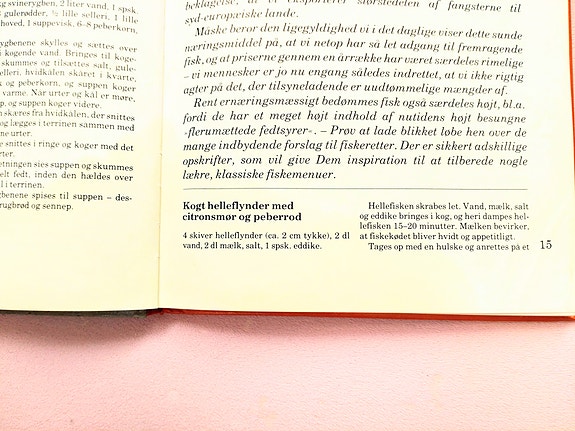 kg svineryghen, 2 liter vand, 1 spsk.
gulerødder, ½ lille selleri, 1 lille
hoved, 1 suppevisk, 6–8 peberkorn,
ygbenene skylles og sættes over
kogende vand. Bringes til koge-
skummes og tilsættes salt, gule-
elleri, hvidkålen skåret i kvarte,
k og peberkorn, og suppen koger
varme. Når urter og kål er møre,
p, og suppen koger videre.
skæres fra hvidkålen, der snittes
g lægges i terrinen sammen med
urter.
snittes i ringe og koger med det
rter.
etningen sies suppen og skummes
elt fedt, inden den hældes over
l i terrinen.
gbenene spises til suppen – des-
rugbrød og sennep.
beklagelse, at vi eksporterer størstedelen af fangsterne til
syd-europæiske lande.
Måske beror den ligegyldighed vi i det daglige viser dette sunde
næringsmiddel på, at vi netop har så let adgang til fremragende
fisk, og at priserne gennem en årrække har været særdeles rimelige
– vi mennesker er jo nu engang således indrettet, at vi ikke rigtig
agter på det, der tilsyneladende er uudtømmelige mængder af.
Rent ernæringsmæssigt bedømmes fisk også særdeles højt, bl.a.
fordi de har et meget højt indhold af nutidens højt besungne
»flerumættede fedtsyrer«. – Prøv at lade blikket løbe hen over de
mange indbydende forslag til fiskeretter. Der er sikkert adskillige
opskrifter, som vil give Dem inspiration til at tilberede nogle
lækre, klassiske fiskemenuer.
Kogt helleflynder med
citronsmør og peberrod
4 skiver helleflynder (ca. 2 cm tykke), 2 dl
vand, 2 dl mælk, salt, 1 spsk. eddike.
Hellefisken skrabes let. Vand, mælk, salt
og eddike bringes i kog, og heri dampes hel-
lefisken 15–20 minutter. Mælken bevirker,
at fiskekødet bliver hvidt og appetitligt.
Tages op med en hulske og anrettes på et
15